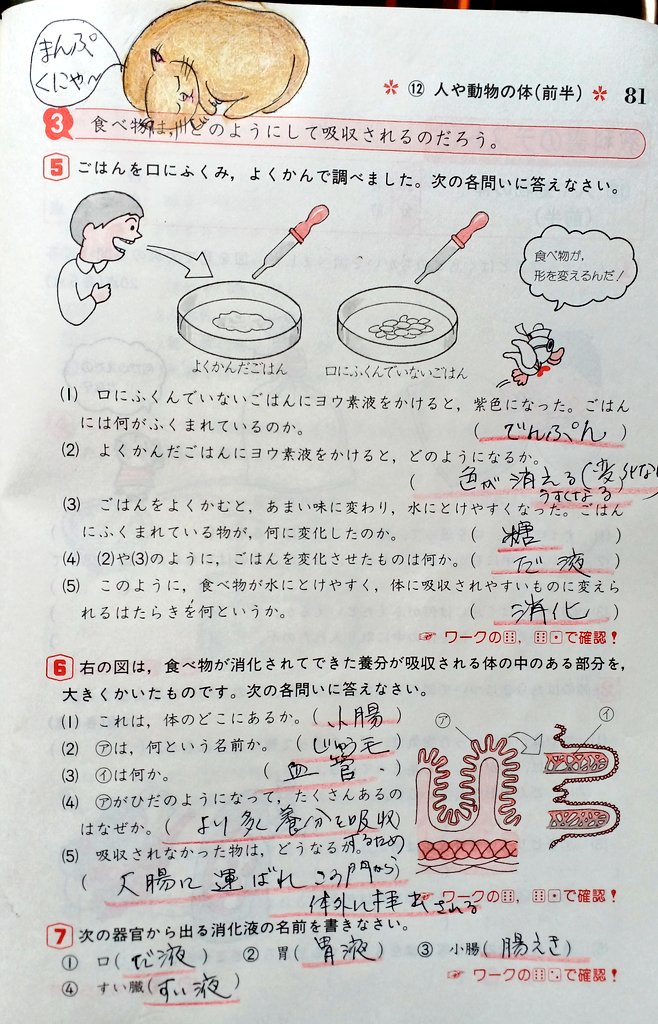 まんぷ
くにゃ〜
＊ ⑫ 人や動物の体(前半) ＊ 81
3 食べ物は,どのようにして吸収されるのだろう。
5 ごはんを口にふくみ，よくかんで調べました。次の各問いに答えなさい。
食べ物が，
形を変えるんだ！
よくかんだごはん 口にふくんでいないごはん
(1) 口にふくんでいないごはんにヨウ素液をかけると，紫色になった。ごはん
には何がふくまれているのか。 ( でんぷん )
(2) よくかんだごはんにヨウ素液をかけると，どのようになるか。
( 色が消える(変化な
うすくなる
(3) ごはんをよくかむと，あまい味に変わり，水にとけやすくなった。ごはん
にふくまれている物が，何に変化したのか。 ( 糖 )
(4) (2)や(3)のように，ごはんを変化させたものは何か。 ( だ液 )
(5) このように，食べ物が水にとけやすく，体に吸収されやすいものに変えら
れるはたらきを何というか。 ( 消化 )
☞ ワークの⚅，⚅⚀で確認！
6 右の図は，食べ物が消化されてできた養分が吸収される体の中のある部分を，
大きくかいたものです。次の各問いに答えなさい。
(1) これは，体のどこにあるか。( 小腸 )
(2) ㋐は，何という名前か。 ( じゅう毛 )
(3) ㋑は何か。 ( 血管 )
(4) ㋐がひだのようになって，たくさんあるの
はなぜか。( より多く養分を吸収
するため
㋐ ㋑
(5) 吸収されなかった物は，どうなるか。
( 大腸に運ばれ こう門から)
体外に排出される
☞ ワークの⚅，⚅で確認！
7 次の器官から出る消化液の名前を書きなさい。
① 口( だ液 ) ② 胃( 胃液 ) ③ 小腸( 腸えき )
④ すい臓( すい液 )
☞ ワークの⚅⚁で確認！